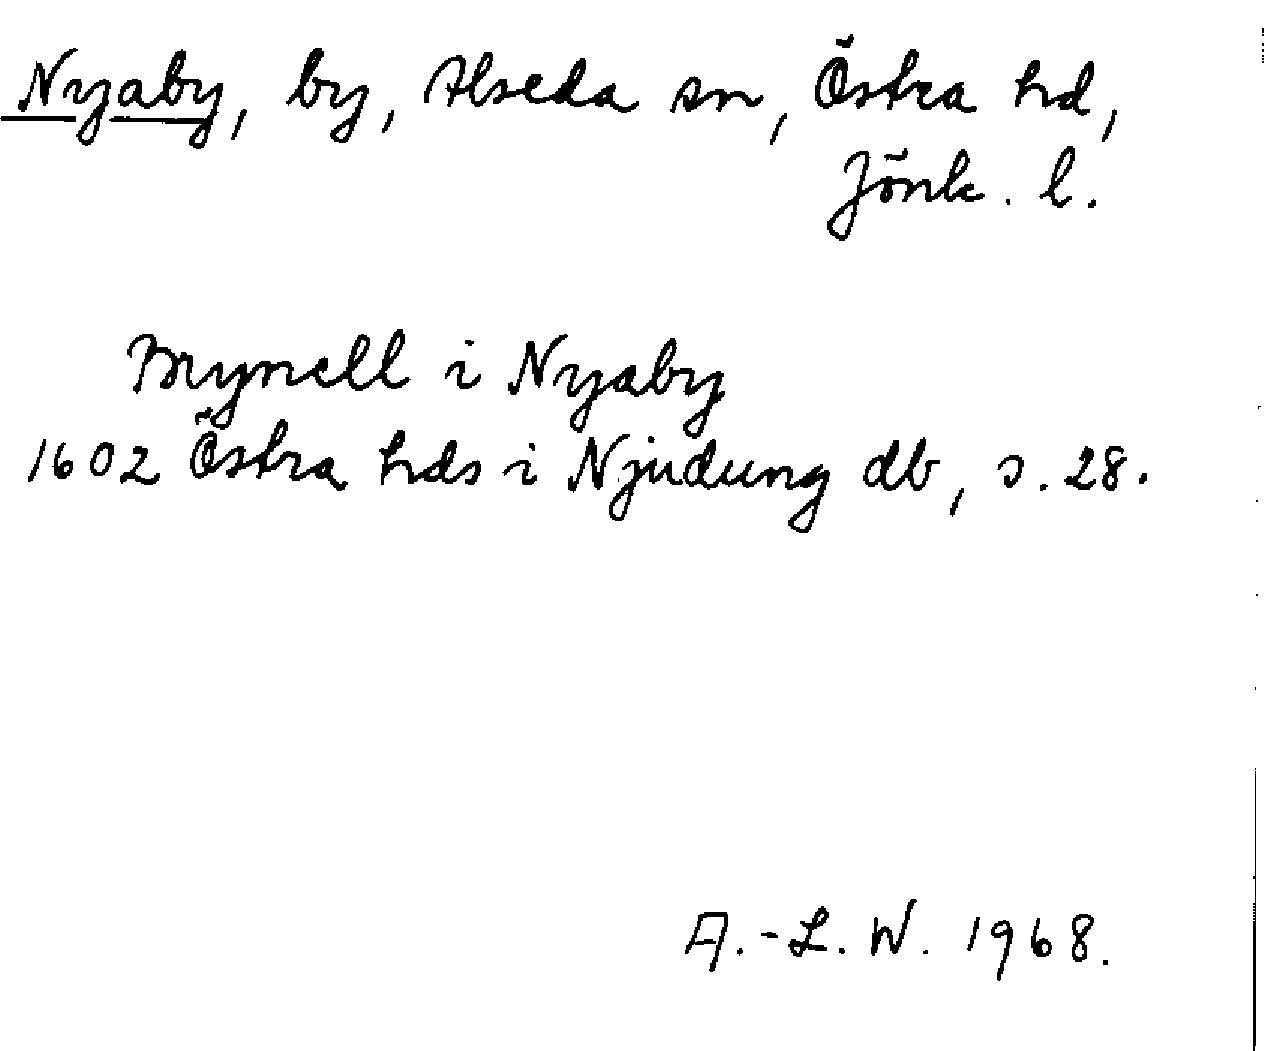 Nyaby, by, Alseda sn, Östra hd,
Jönk. l.
Brynell i Nyaby
1602 Östra hds i Njudung db, s. 28.
A.-L. W. 1968.